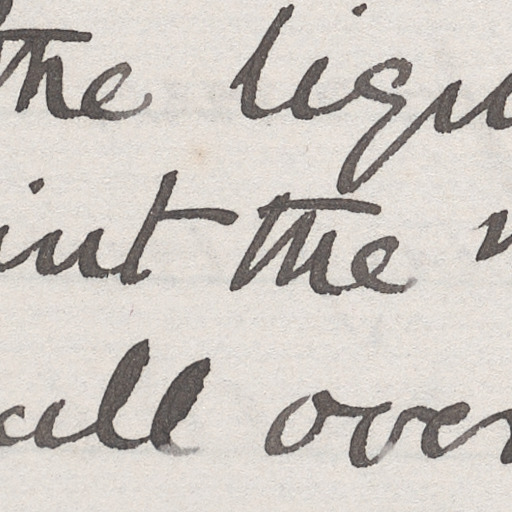 the liqu
int the
all over